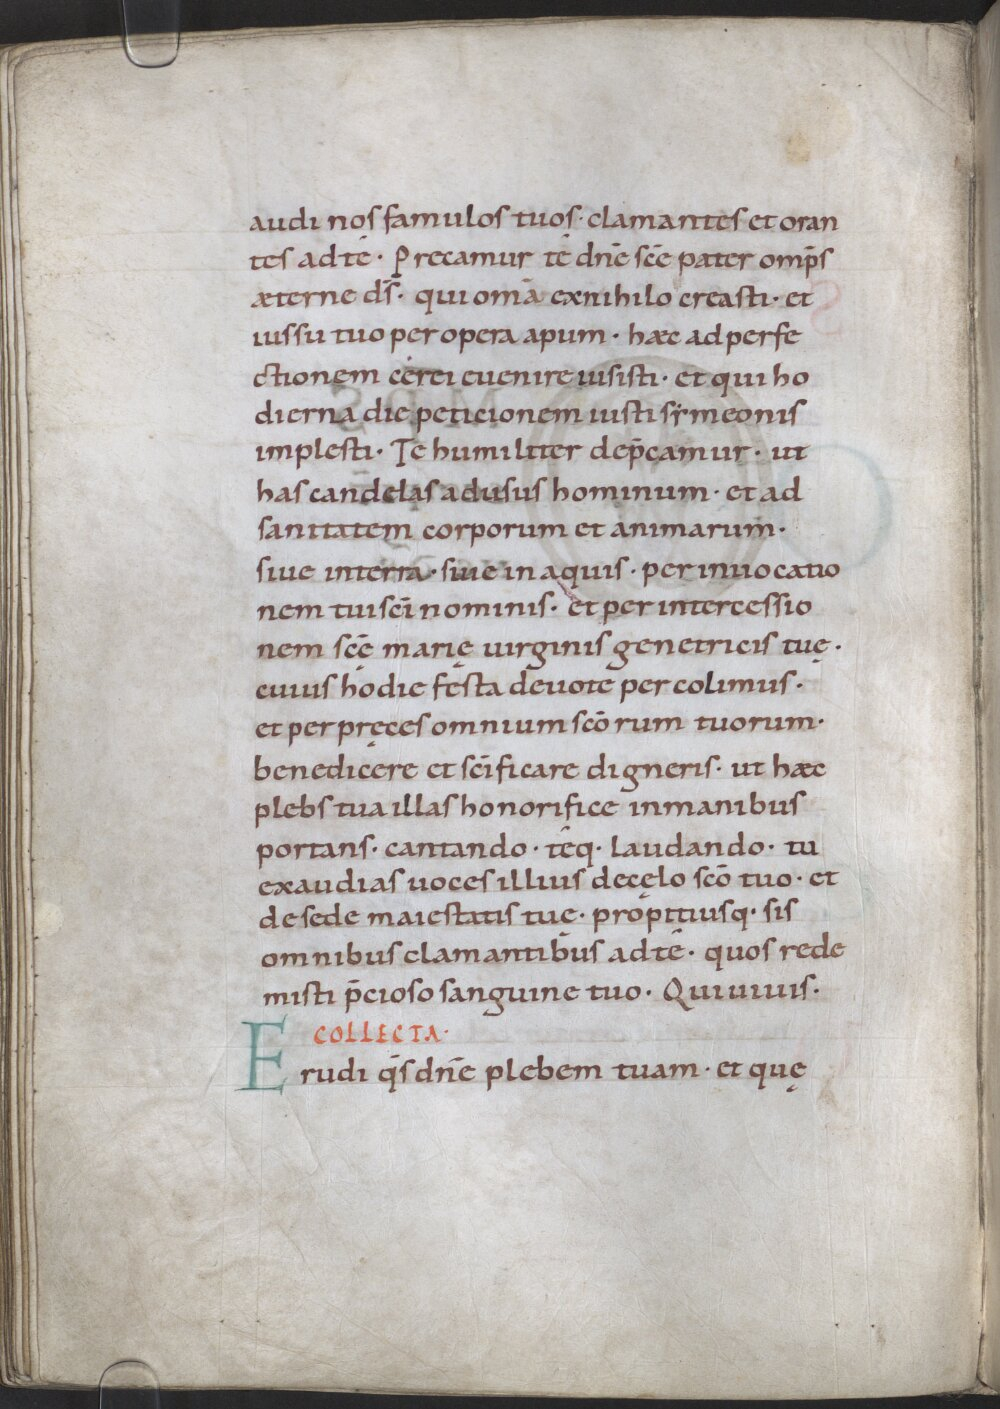 audi nos famulos tuos· clamantes et oran
tes ad té· Precamur té dn̄e sc̄e pater omp̄s
æterne ds̄· qui om̄a ex nihilo creasti· et
iussu tuo per opera apum· hæc ad perfe
ctionem cerei euenire iusisti· et qui ho
dierna die peticionem iusti sẏmeonis
implesti· Te humiliter dep̄camur· ut
has candelas ad usus hominum· et ad
sanitatem corporum et animarum·
siue in terra· siue in aquis· per inuocatio
nem tui sc̄i nominis· et per intercessio
nem sc̄ę marię uirginis genetricis tuę·
cuius hodie festa deuote percolimus·
et per pręces omnium sc̄orum tuorum·
benedicere et sc̄ificare digneris· ut hæc
plebs tua illas honorifice in manibus
portans· cantando· téq· laudando· tu
exaudias uoces illius de cęlo sc̄o tuo· et
de sede maiestatis tuę· propitiusq· sis
omnibus clamantibus ad té· quos rede
misti p̄cioso sanguine tuo· Qui uiuis·
COLLECTA·
Erudi qs̄ dn̄e plebem tuam· et quę